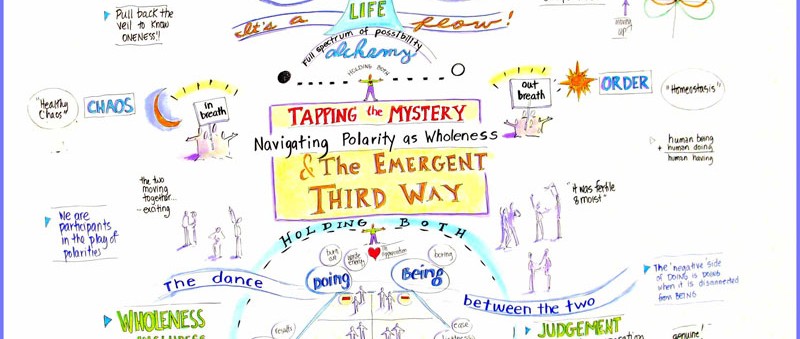 LIFE
It's a flow!
Pull back the
veil to know
ONENESS!!
full spectrum of possibility
alchemy
HOLDING BOTH
"Healthy
Chaos"
CHAOS
in
breath
out
breath
ORDER
"Homeostasis"
TAPPING the MYSTERY
Navigating Polarity as Wholeness
& The EMERGENT
THIRD WAY
human being
+ human doing
human having
the two
moving
together...
exciting
"it was fertile
& moist"
We are
participants
in the play of
polarities
HOLDING BOTH
burn
out
boring
Doing
Being
The dance
between the two
The "negative side
of DOING is DOING
when it is disconnected
from BEING
WHOLENESS
JUDGEMENT
results
ease
genuine!